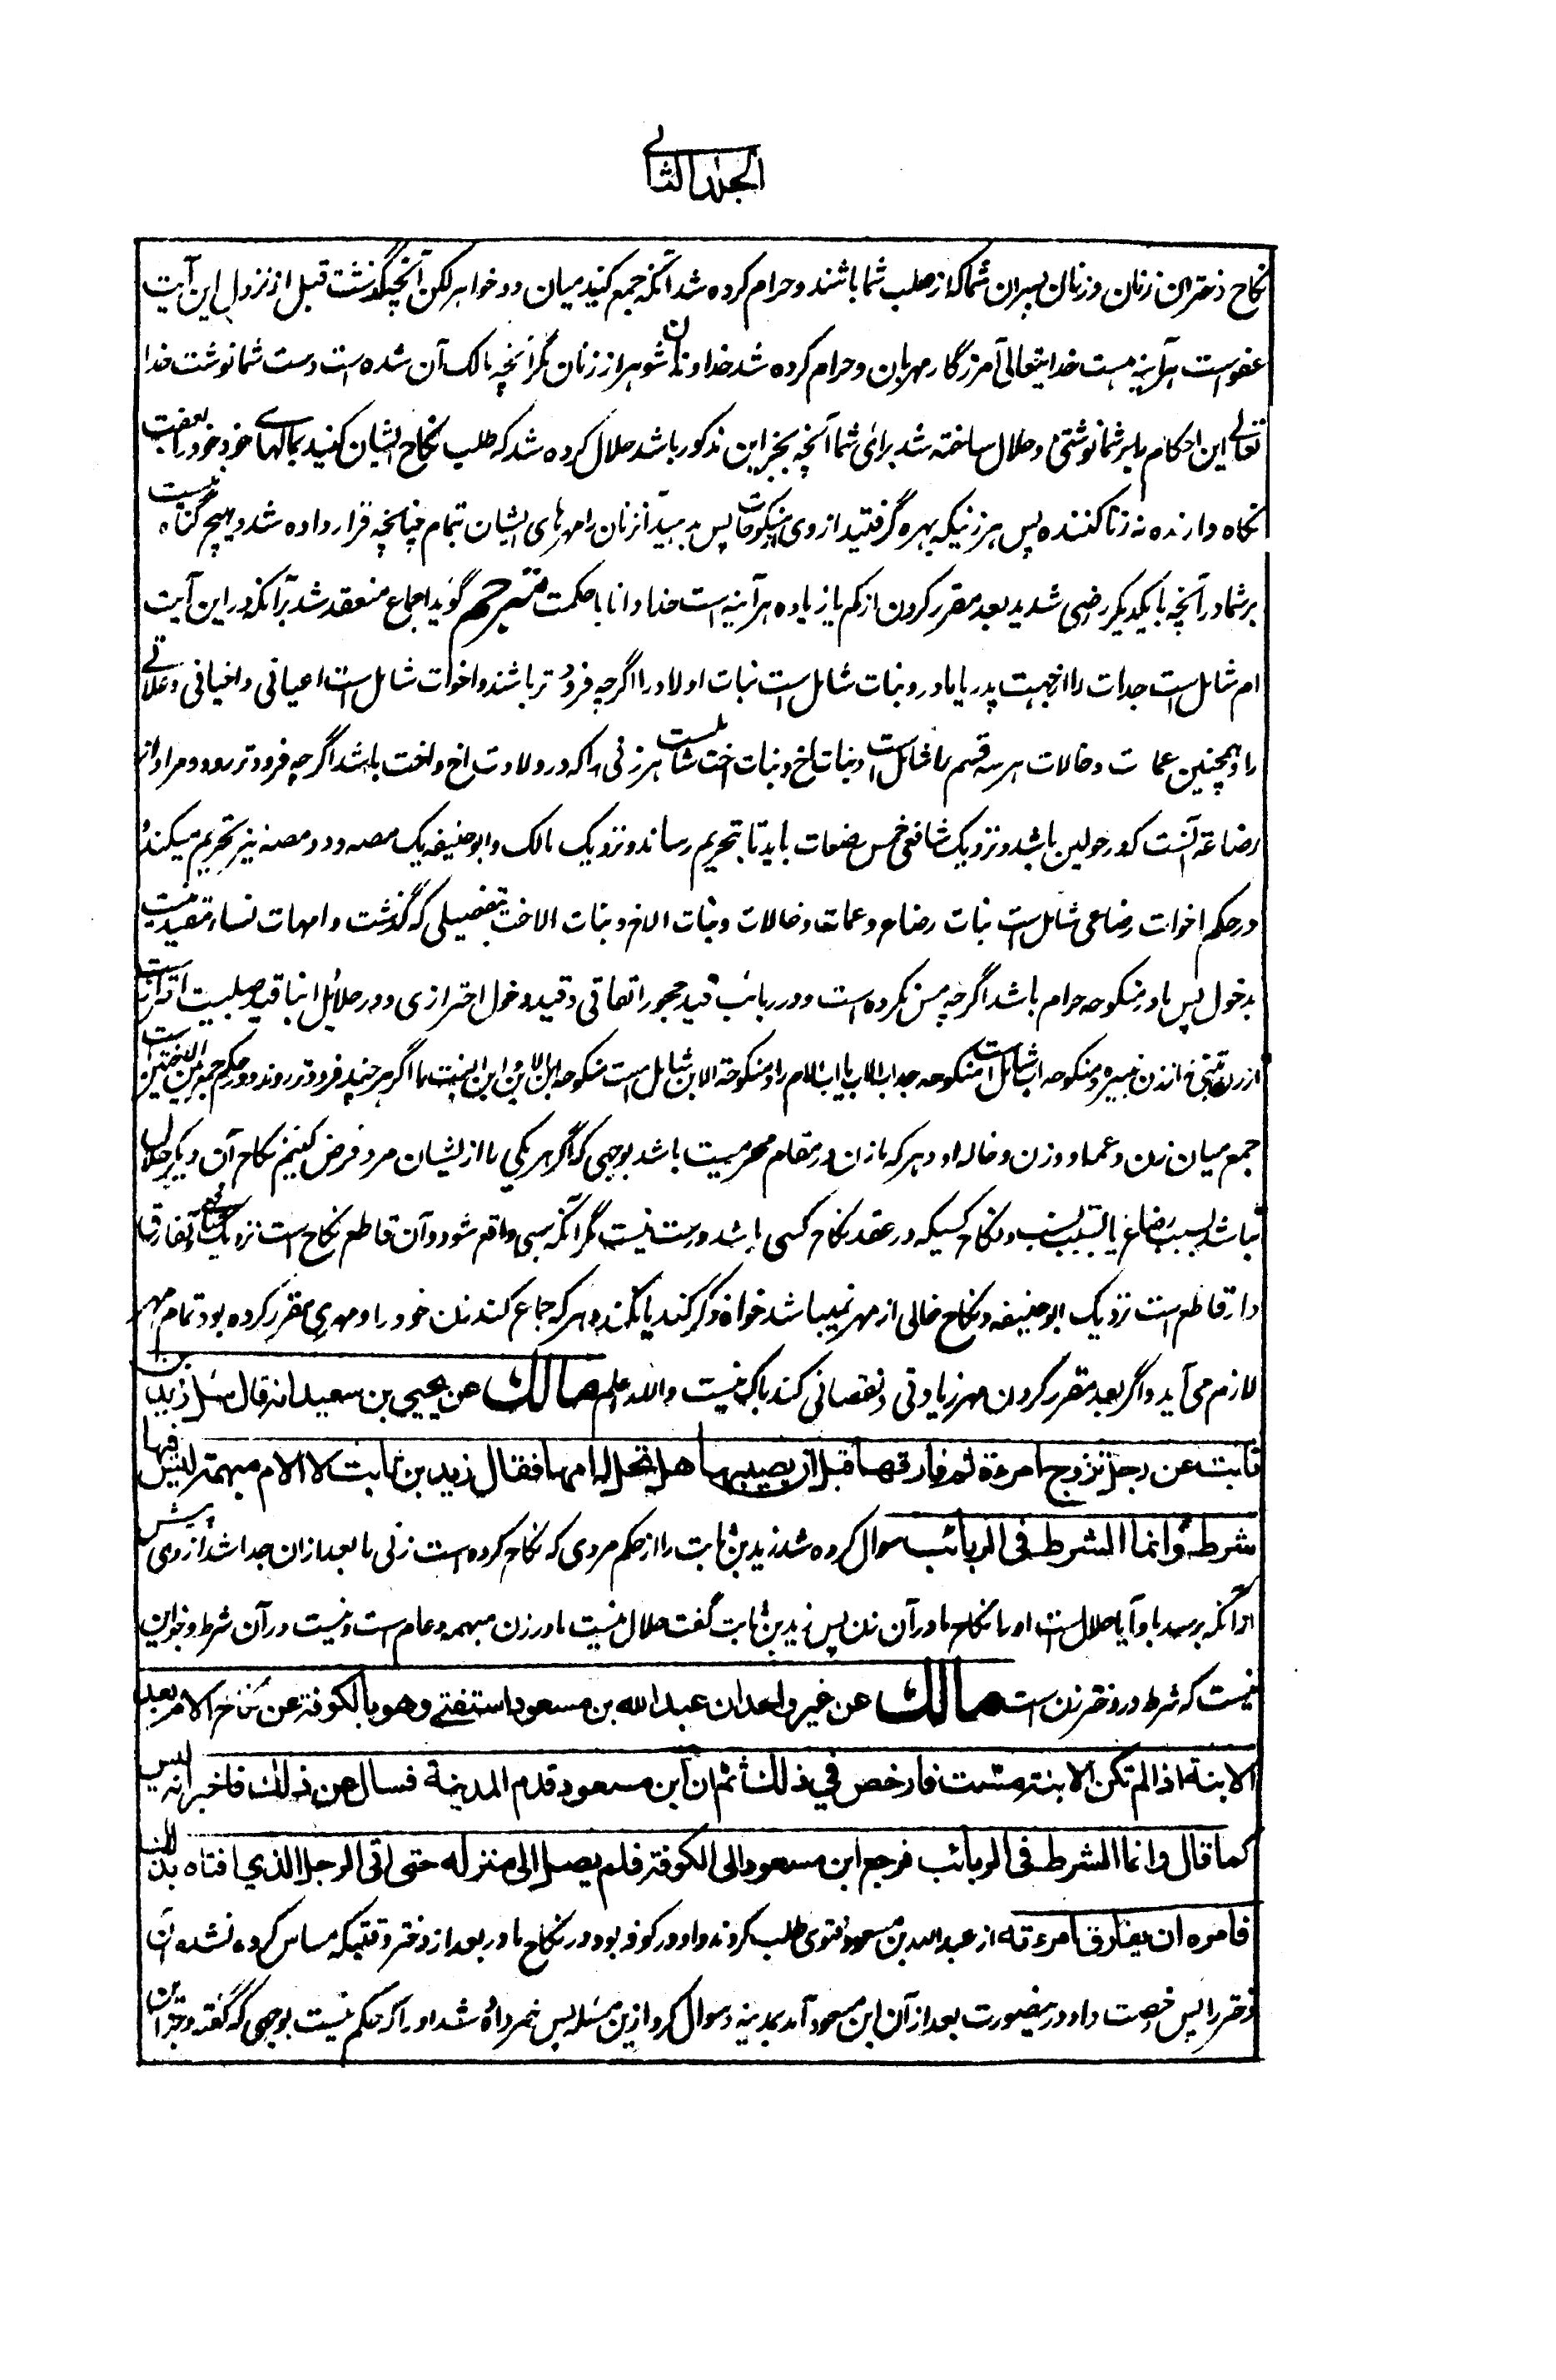 الجلد الثانی
نکاح دختران زنان و زنان پسران شما که از صلب شما باشند و حرام کرده شد آنکه جمع کنید میان دو خواهر لکن آنچه گذشت قبل از نزول این آیت
عفو است هرآینه هست خدایتعالی آمرزگار مهربان و حرام کرده شد خداوندان شوهر از زنان مگر آنچه مالک آن شده است دست شما نوشت خدا
تعالی این احکام را بر شما نوشتنی و حلال ساخته شد برای شما آنچه بجز این مذکور باشد حلال کرده شد که طلب نکاح ایشان کنید بمالهای خود خود را بعفت
نگاه دارنده نه زنا کننده پس هر زنیکه بهره گرفتید از وی از منکوحات پس بدهید آنزنان را مهرهای ایشان بتمام چنانچه قرار داده شد و هیچ گناه نیست
بر شما در آنچه با یکدیگر راضی شدید بعد مقرر کردن از کم یا زیاده هرآینه است خدا دانا با حکمت مترجم گوید اجماع منعقد شد برآنکه در این آیت
ام شامل است جدات را از جهت پدر یا مادر و بنات شامل است بنات اولاد را اگرچه فروتر باشند و اخوات شامل است اعیانی و اخیافی و علاتی
را و همچنین عمات و خالات هر سه قسم را شامل است و بنات اخ و بنات اخت شامل است هر زنی را که در ولادت اخ و اخت باشد اگرچه فرودتر رود و مراد از
رضاعة آنست که در حولین باشد و نزدیک شافعی خمس رضعات باید تا بتحریم رساند و نزدیک مالک و ابو حنیفه یک مصه و دو مصه نیز تحریم میکند و
در حکم اخوات رضاعی شامل است بنات رضاع و عمات و خالات و بنات الاخ و بنات الاخت بتفصیلی که گذشت و امهات نساء مقید نیست
بدخول پس مادر منکوحه حرام باشد اگرچه مس نکرده است و در ربائب قید حجور اتفاقی و قید دخول احترازی و در حلائل ابنا قید صلبیت احتراز است
از زن متبنی نه از زن نبیره و منکوحه اب شامل است منکوحه جد اب الاب یا اب الام را و منکوحة الابن شامل است منکوحه ابن الابن و ابن البنت را اگر هرچند فرودتر روند و در حکم جمع بین الاختین است
جمع میان زن و عمه او و زن و خاله او و هر که با زن در مقام محرمیت باشد بوجهی که اگر هر یکی را از ایشان مرد فرض کنیم نکاح آن دیگر حلال او را
نباشد بسبب رضاع یا بسبب نسب و نکاح کسیکه در عقد نکاح کسی باشد درست نیست مگر آنکه سبی واقع شود و آن قاطع نکاح است نزدیک شافعی و تفارق
دار قاطع است نزدیک ابو حنیفه و نکاح خالی از مهر نمیباشد خواه ذکر کند یا نکند و هر که جماع کند زن خود را و مهری مقرر کرده بود تمام مهر
لازم می آید و اگر بعد مقرر کردن مهر زیادتی و نقصانی کند باک نیست والله اعلم مالك عن یحیی بن سعید انه قال سئل زید بن
ثابت عن رجل تزوج امرءة ثم فارقها قبل ان یصیبها هل تحل له امها فقال زید بن ثابت لا الام مبهمة لیس فیها
شرط وانما الشرط فی الربائب سوال کرده شد زید بن ثابت را از حکم مردی که نکاح کرده است زنی را بعد ازان جدا شد از وی پیش
از آنکه برسد باو آیا حلال است او را نکاح مادر آن زن پس زید بن ثابت گفت حلال نیست مادر زن مبهمه و عام است و نیست در آن شرط و جز این
نیست که شرط در دختر زن است مالك عن غیر واحد ان عبد الله بن مسعود استفتی وهو بالکوفة عن نکاح الام بعد
الابنة اذا لم تکن الابنة مست فارخص في ذلك ثم ان ابن مسعود قدم المدینة فسال عن ذلك فاخبر انه لیس
کما قال وانما الشرط فی الربائب فرجع ابن مسعود الی الکوفة فلم یصل الی منزله حتی اتی الرجل الذي افتاه بذلك
فامره ان یفارق امرءته از عبد الله بن مسعود فتوی طلب کردند و او در کوفه بود در نکاح مادر بعد از دختر وقتیکه مساس کرده نشده آن
دختر را پس رخصت داد درینصورت بعد از آن ابن مسعود آمد بمدینه و سوال کرد ازین مسئله پس خبر داده شد او را که حکم نیست بوجهی که گفته و جز این